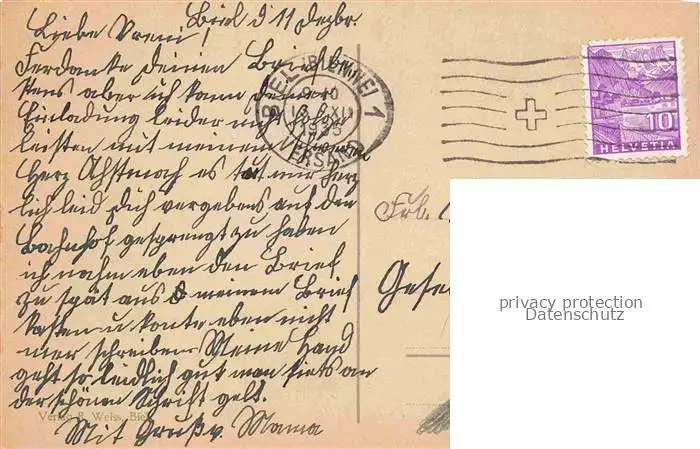 Biel d 11 Dezbr.
Liebe Vreni!
Verdanke deinen Brief
aber ich kann deiner
Einladung leider nicht folge
leisten mit meinem
Herz Asthma es tut mir herz
lich leid dich vergebens auf den
Bahnhof gesprengt zu haben
ich nahm eben den Brief
zu spät aus meinem Brief
kasten u konte eben nicht
mer schreiben Meine Hand
geht so leidlich gut man siets an
der schönen Schrift gelt.
Mit Gruß v. Mama
Verlag R. Weiss, Biel
BIEL (BIENNE) 1
XII
1935
VERSAND
10
HELVETIA
Frl.
Gese
privacy protection
Datenschutz